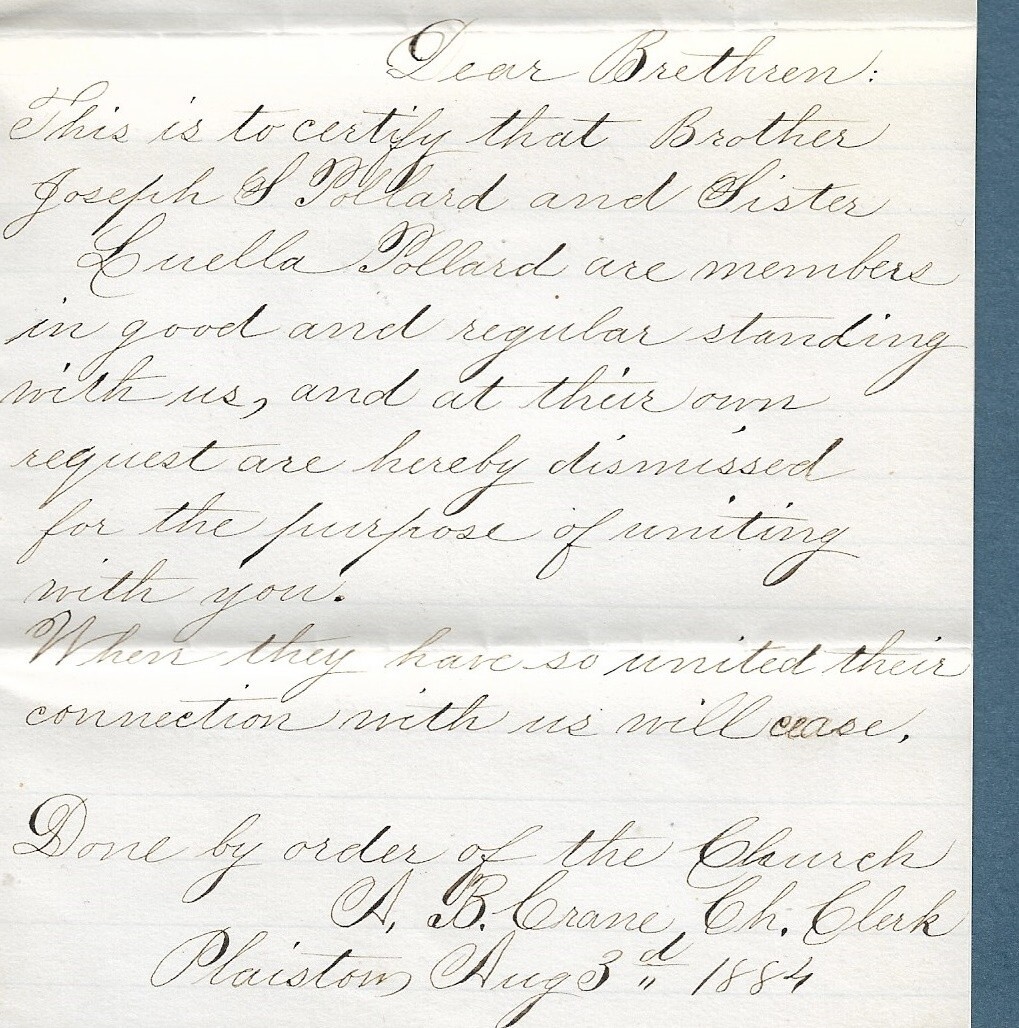 Dear Brethren:
This is to certify that Brother
Joseph S Pollard and Sister
Luella Pollard are members
in good and regular standing
with us, and at their own
request are hereby dismissed
for the purpose of uniting
with you.
When they have so united their
connection with us will cease.
Done by order of the Church
A. B. Crane, Ch. Clerk
Plaistow, Aug 3d 1884